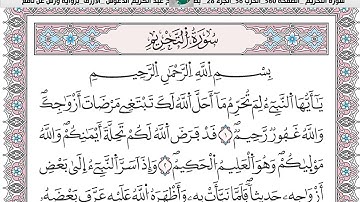 سورة التحريم_الصفحة 560_الحزب 56_الجزء 28_ بصـ د عبد الكريم الدغوش_الأزرق_برواية ورش عن نافع
سُورَةُ التَّحْرِيمِ
بِسْمِ اللَّهِ الرَّحْمَٰنِ الرَّحِيمِ
يَٰٓأَيُّهَا اَلنَّبِےٓءُ لِمَ تُحَرِّمُ مَآ أَحَلَّ اَللَّهُ لَكَ تَبْتَغِے مَرْضَاتَ أَزْوَٰجِكَۖ
وَاللَّهُ غَفُورٞ رَّحِيمٞۖ ١ قَدْ فَرَضَ اَللَّهُ لَكُمْ تَحِلَّةَ أَيْمَٰنِكُمْۖ وَاللَّهُ
مَوْلَيٰكُمْۖ وَهُوَ اَلْعَلِيمُ اُلْحَكِيمُۖ ٢ وَإِذَ اَسَرَّ اَلنَّبِےٓءُ إِلَىٰ بَعْضِ
أَزْوَٰجِهِۦ حَدِيثاٗ فَلَمَّا نَبَّأَتْ بِهِۦ وَأَظْهَرَهُ اُللَّهُ عَلَيْهِ عَرَّفَ بَعْضَهُۥ